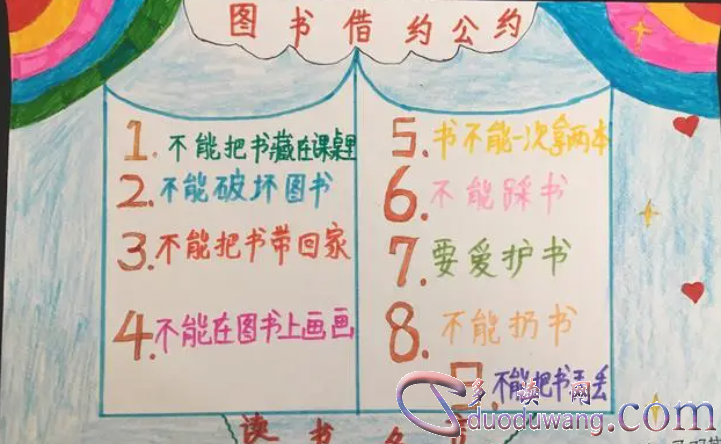 图书借约公约
1. 不能把书藏在课桌里
2. 不能破坏图书
3. 不能把书带回家
4. 不能在图书上画画
5. 书不能一次拿两本
6. 不能踩书
7. 要爱护书
8. 不能扔书
不能把书弄丢
多 网
duoduwang.com
读书